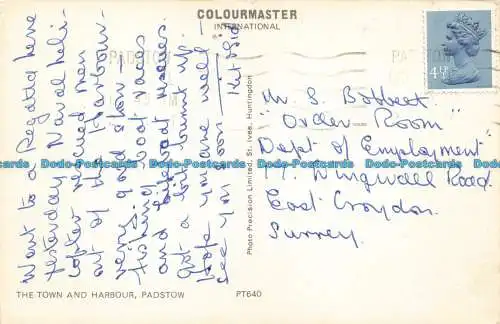 COLOURMASTER
INTERNATIONAL
PADSTOW
4½P
Went to a Regatta here
yesterday. Naval heli-
copter rescued men
out of the harbour-
very good show -
and boat races
and
Got a bit burnt up.
hope you are well -
See you soon
Mr S. Bobbett
"Order Room"
Dept of Employment
Dingwall Road
East Croydon
Surrey.
Photo Precision Limited, St. Ives, Huntingdon
THE TOWN AND HARBOUR, PADSTOW
PT640
Dodo-Postcards Dodo-Postcards Dodo-Postcards Dodo-Postcards Dodo-Postcards